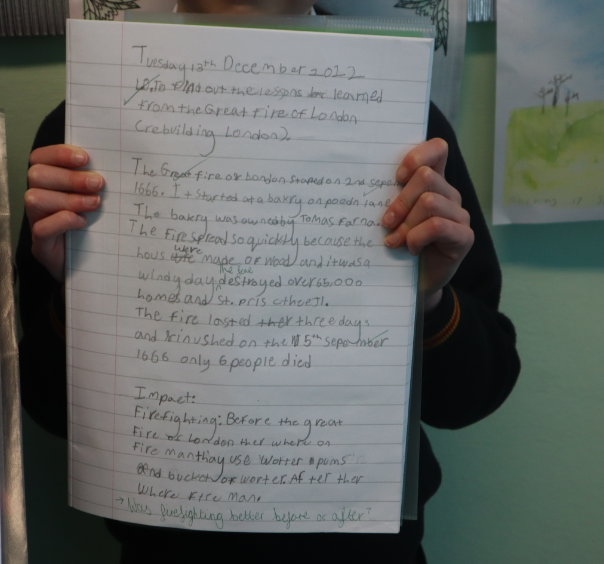 Tuesday 13th December 2022
LO. To find out the lessons learned
from the Great Fire of London
(rebuilding London).
The Great fire of London started on 2nd sepe
1666. It started at a bakry on poodn lane
The bakry was owned by Tomas Farna
The Fire spread so quickly because the
hous were made of wood and it was a
windy day, the fire destroyed over 65.000
homes and St. pris
The fire lasted three days
and finushed on the 5th sepember
1666 only 6 people died
Impact:
Firefighting: Before the great
fire of London ther where on
fire man thay use wotter pums
and bucket of worter. Af ter ther
where fire man.
→ Was firefighting better before or after?